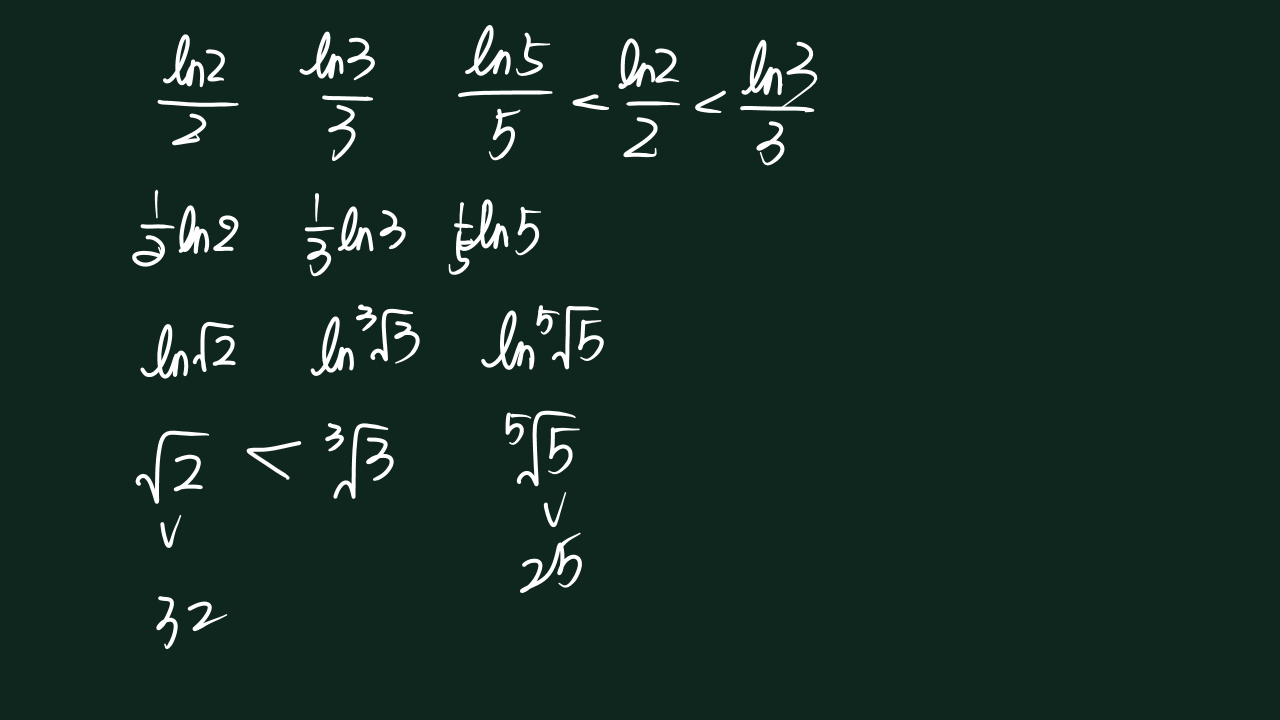 ln2/2 ln3/3 ln5/5 < ln2/2 < ln3/3
1/2 ln2 1/3 ln3 1/5 ln5
ln√2 ln³√3 ln⁵√5
√2 < ³√3 ⁵√5
∨ ∨
32 25